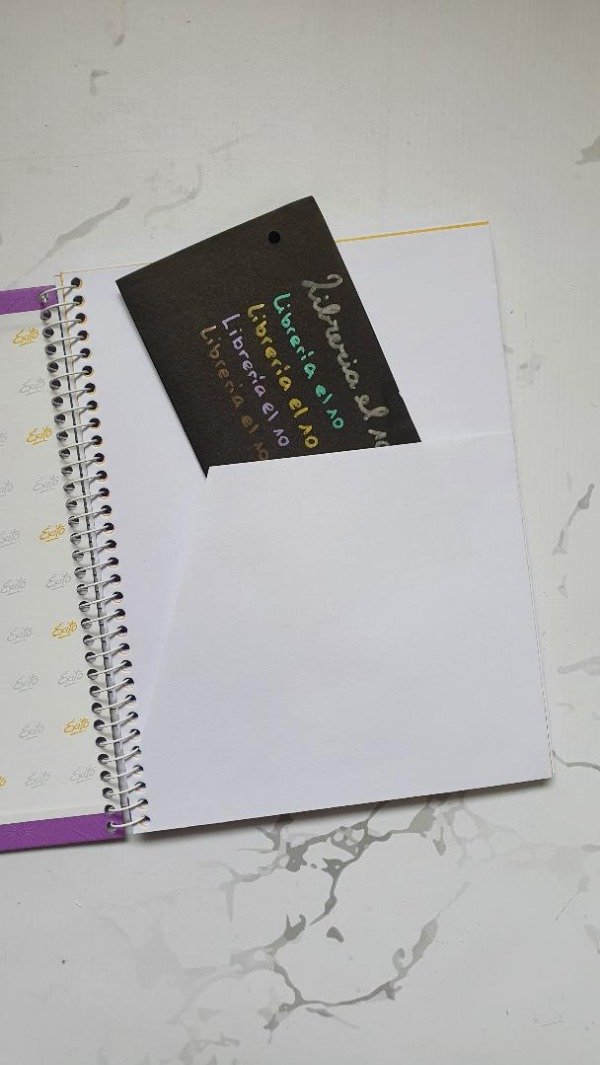 Éxito
Éxito
Éxito
Éxito
Éxito
Éxito Éxito
Éxito Éxito
Éxito Éxito
Éxito Éxito
Éxito Éxito
Libreria el 10
Libreria el 10
Libreria el 10
Librería el 10
Libreria el 10